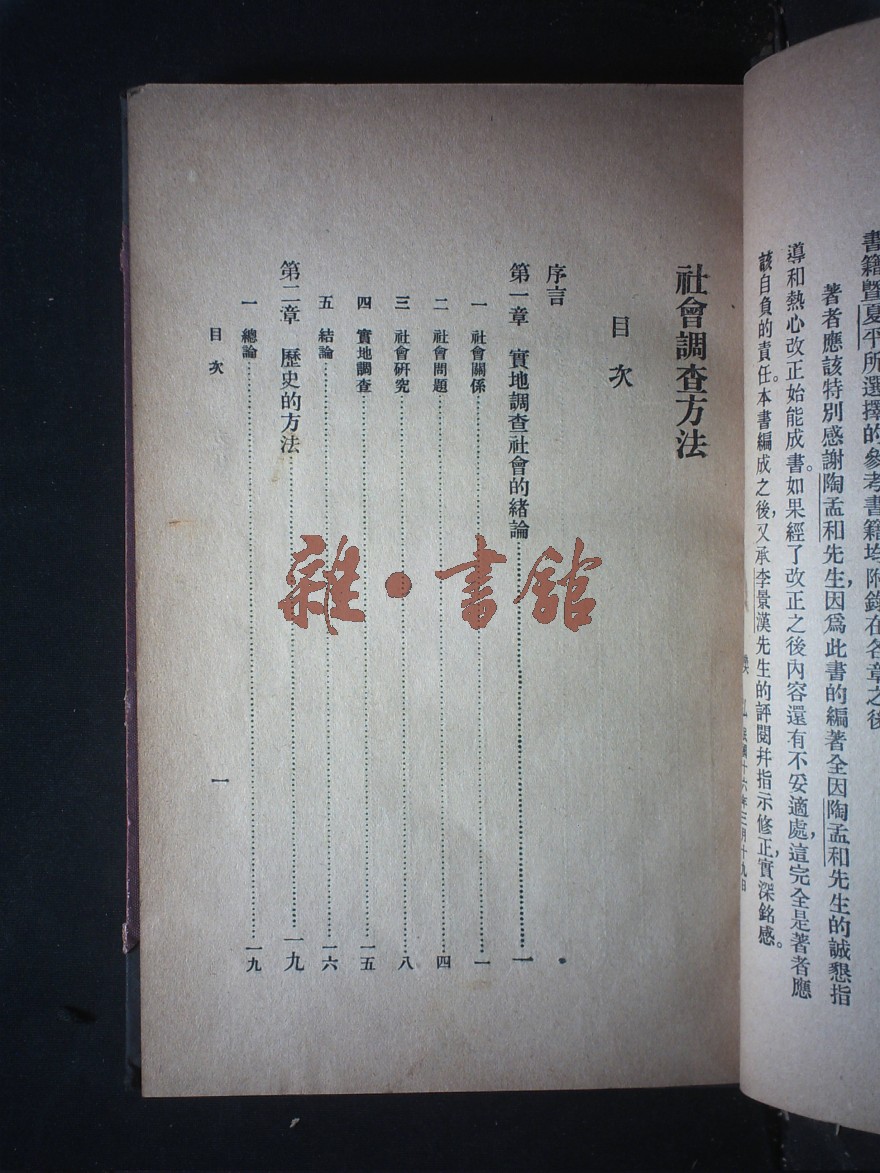 書籍曁夏平所選擇的參考書籍均附錄在各章之後
著者應該特別感謝陶孟和先生,因爲此書的編著全因陶孟和先生的誠懇指
導和熱心改正始能成書。如果經了改正之後內容還有不妥適處,這完全是著者應
該自負的責任。本書編成之後,又承李景漢先生的評閱幷指示修正,實深銘感。
弘 民國十六年三月十九日
社會調查方法
目次
序言
第一章 實地調查社會的緒論……一
一 社會關係……一
二 社會問題……四
三 社會研究……八
四 實地調查……一五
五 結論……一六
第二章 歷史的方法……一九
一 總論……一九
目次
一
雜·書館